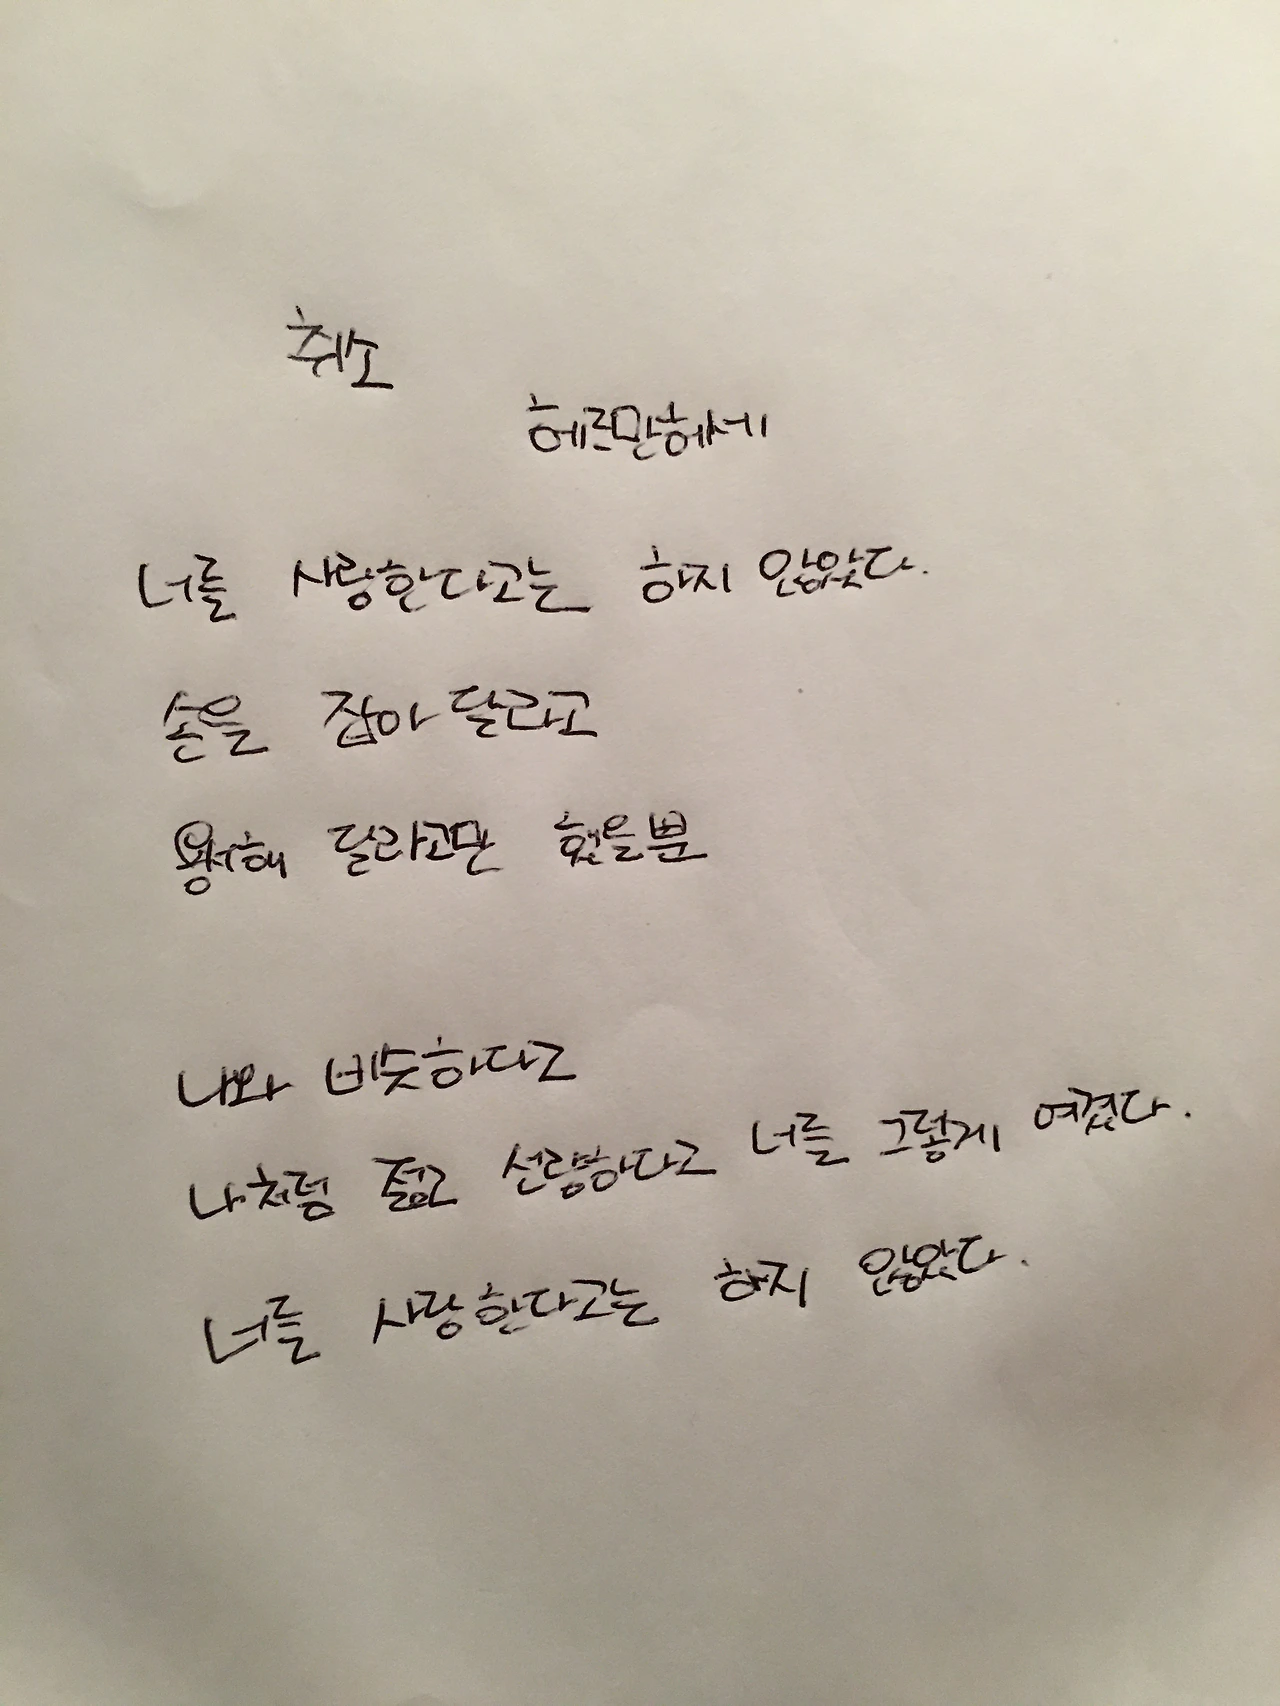 취소
헤르만헤세
너를 사랑한다고는 하지 않았다.
손을 잡아 달라고
용서해 달라고만 했을뿐
나와 비슷하다고
나처럼 젊고 선량하다고 너를 그렇게 여겼다.
너를 사랑한다고는 하지 않았다.